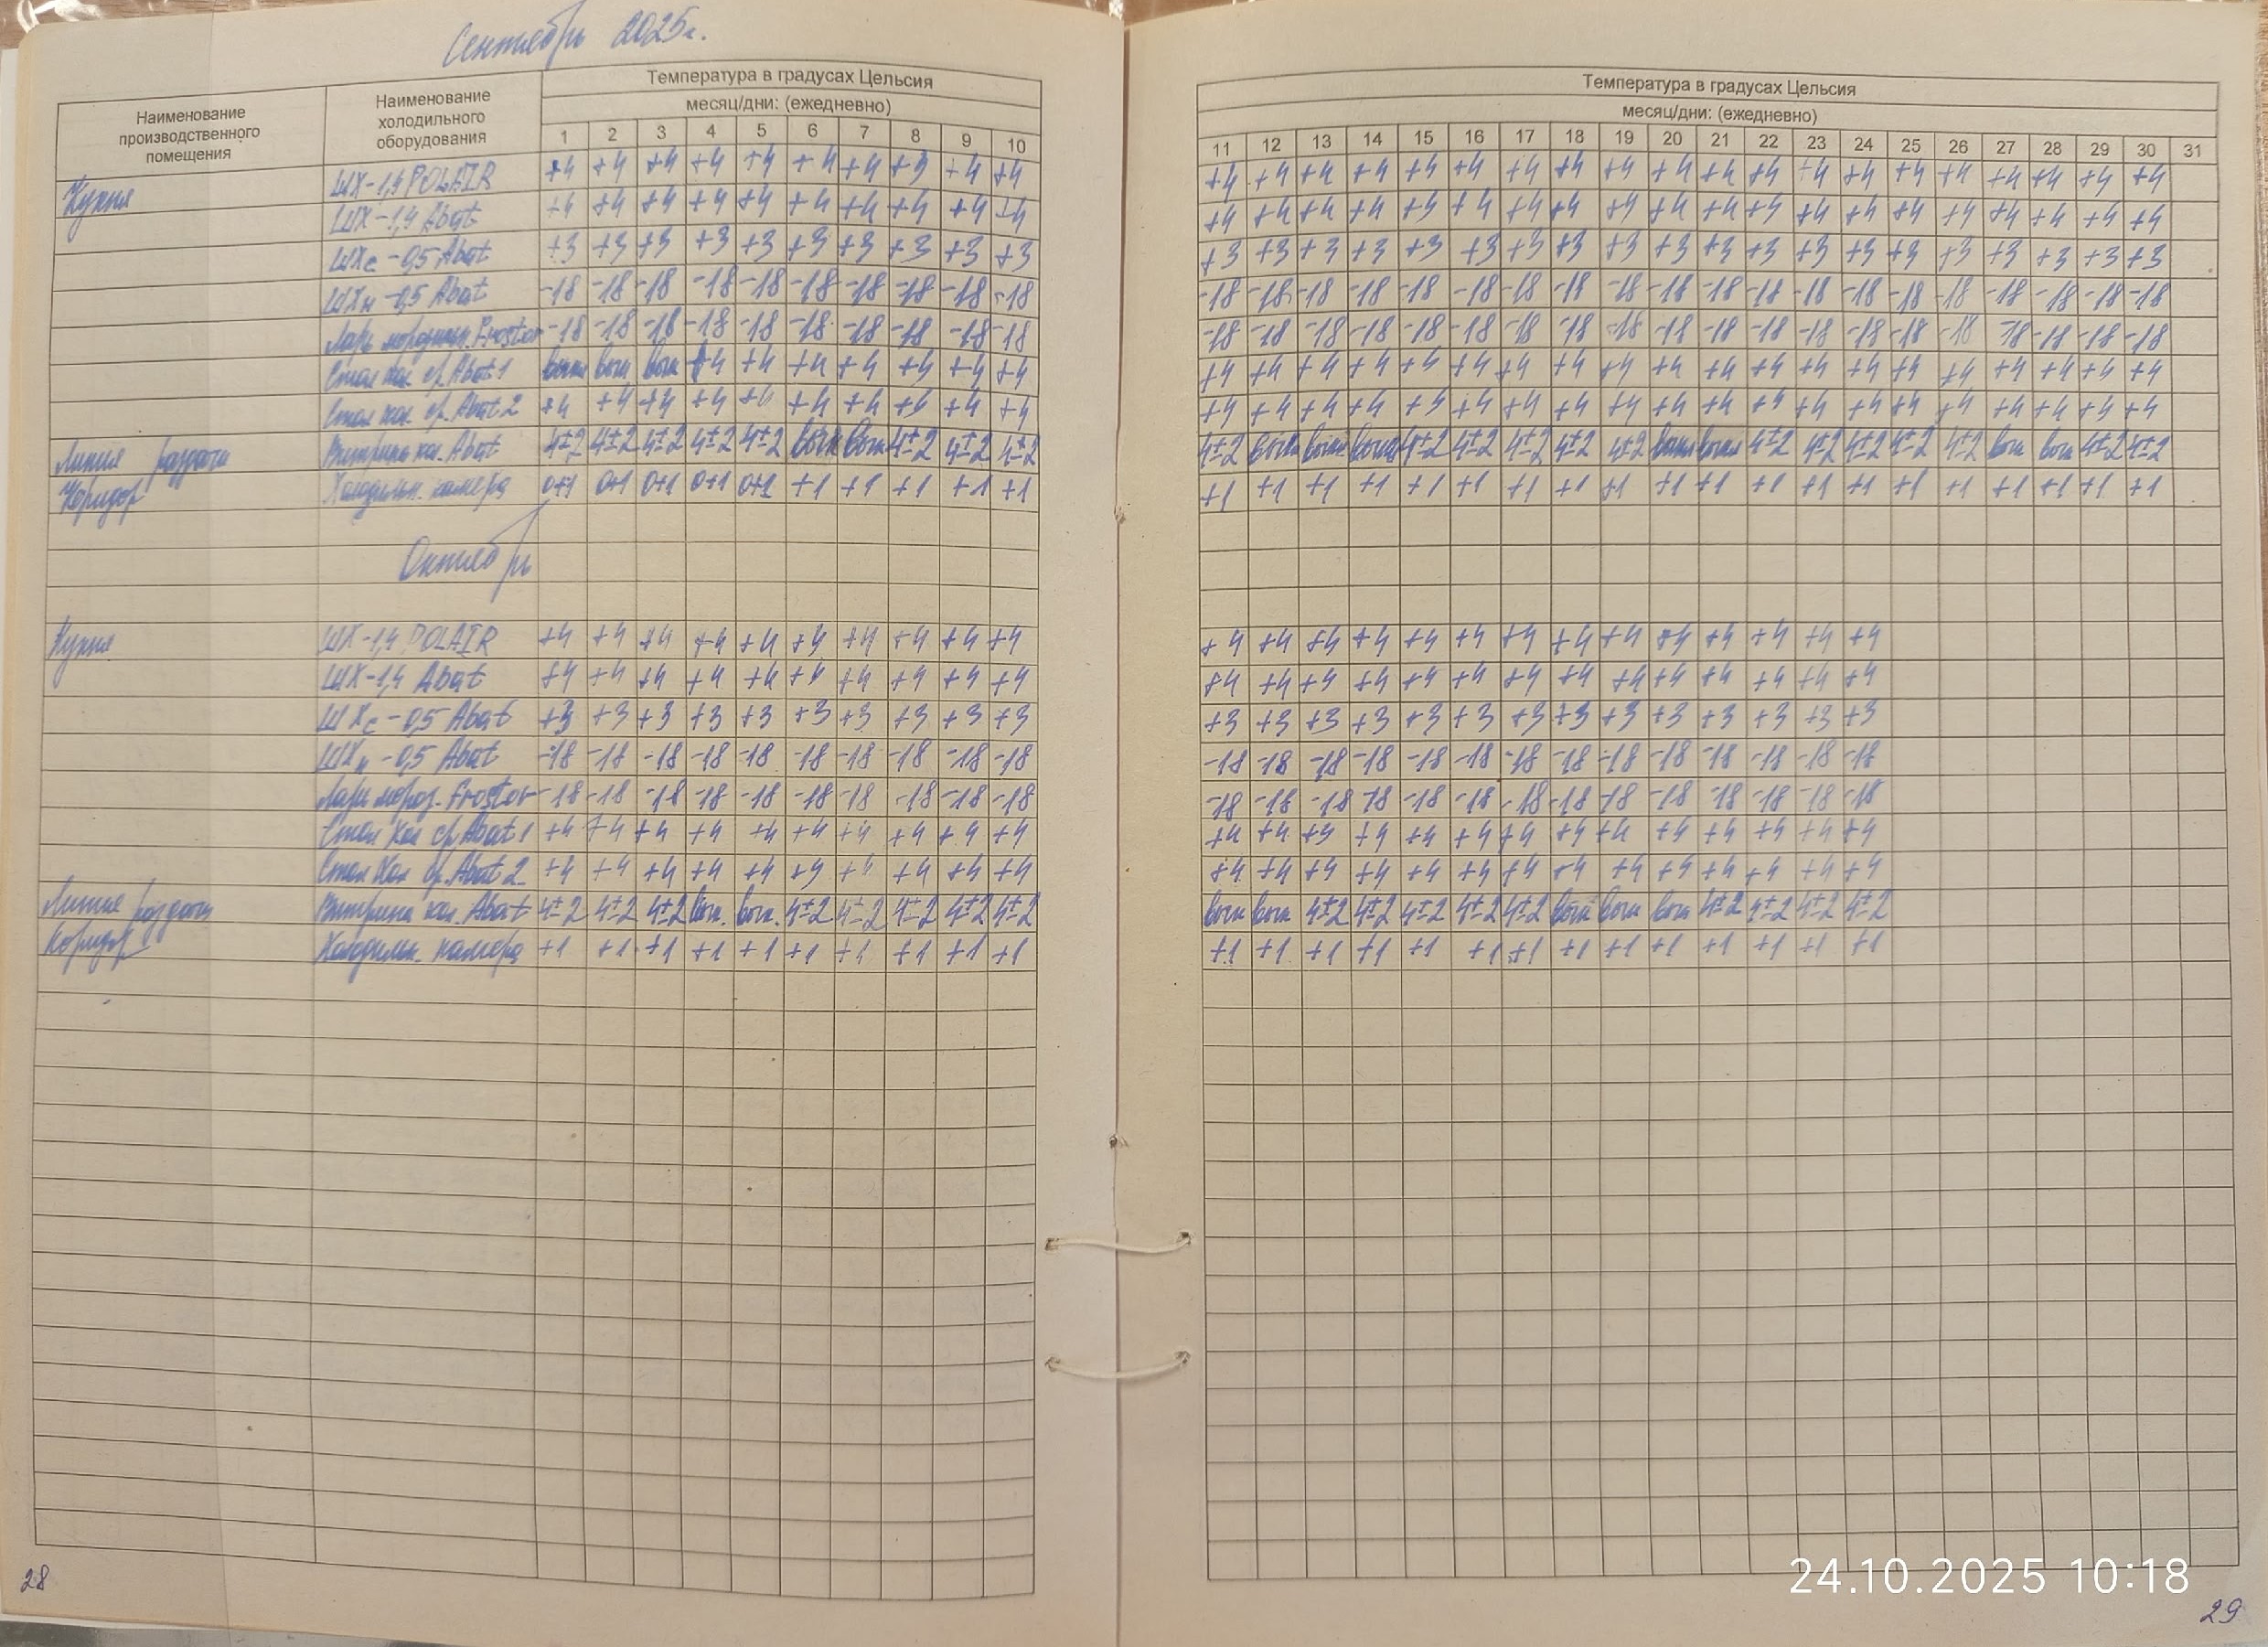 Сентябрь 2025г.
Наименование производственного помещения
Наименование холодильного оборудования
Температура в градусах Цельсия
месяц/дни: (ежедневно)
1 2 3 4 5 6 7 8 9 10
Температура в градусах Цельсия
месяц/дни: (ежедневно)
11 12 13 14 15 16 17 18 19 20 21 22 23 24 25 26 27 28 29 30 31
Кухня ШХ-1,4 POLAIR +4 +4 +4 +4 +4 +4 +4 +3 +4 +4 +4 +4 +4 +4 +4 +4 +4 +4 +4 +4 +4 +4 +4 +4 +4 +4 +4 +4 +4 +4
ШХ-1,4 Abat +4 +4 +4 +4 +4 +4 +4 +4 +4 +4 +4 +4 +4 +4 +4 +4 +4 +4 +4 +4 +4 +4 +4 +4 +4 +4 +4 +4 +4 +4
ШХс-0,5 Abat +3 +3 +3 +3 +3 +3 +3 +3 +3 +3 +3 +3 +3 +3 +3 +3 +3 +3 +3 +3 +3 +3 +3 +3 +3 +3 +3 +3 +3 +3
ШХн-0,5 Abat -18 -18 -18 -18 -18 -18 -18 -18 -18 -18 -18 -18 -18 -18 -18 -18 -18 -18 -18 -18 -18 -18 -18 -18 -18 -18 -18 -18 -18 -18
Ларь морозильн. Frostor -18 -18 -18 -18 -18 -18 -18 -18 -18 -18 -18 -18 -18 -18 -18 -18 -18 -18 -18 -18 -18 -18 -18 -18 -18 -18 -18 -18 -18 -18
Стол хол. ср. Abat 1 выкл выкл выкл +4 +4 +4 +4 +4 +4 +4 +4 +4 +4 +4 +4 +4 +4 +4 +4 +4 +4 +4 +4 +4 +4 +4 +4 +4 +4 +4
Стол хол. ср. Abat 2 +4 +4 +4 +4 +4 +4 +4 +4 +4 +4 +4 +4 +4 +4 +4 +4 +4 +4 +4 +4 +4 +4 +4 +4 +4 +4 +4 +4 +4 +4
Линия раздачи Витрина хол. Abat 4±2 4±2 4±2 4±2 4±2 выкл выкл 4±2 4±2 4±2 4±2 выкл выкл выкл 4±2 4±2 4±2 4±2 4±2 выкл выкл 4±2 4±2 4±2 4±2 4±2 выкл выкл 4±2 4±2
Коридор Холодильн. камера 0+1 0+1 0+1 0+1 0+1 +1 +1 +1 +1 +1 +1 +1 +1 +1 +1 +1 +1 +1 +1 +1 +1 +1 +1 +1 +1 +1 +1 +1 +1 +1
Октябрь
Кухня ШХ-1,4 POLAIR +4 +4 +4 +4 +4 +4 +4 +4 +4 +4 +4 +4 +4 +4 +4 +4 +4 +4 +4 +4 +4 +4 +4 +4
ШХ-1,4 Abat +4 +4 +4 +4 +4 +4 +4 +4 +4 +4 +4 +4 +4 +4 +4 +4 +4 +4 +4 +4 +4 +4 +4 +4
ШХс-0,5 Abat +3 +3 +3 +3 +3 +3 +3 +3 +3 +3 +3 +3 +3 +3 +3 +3 +3 +3 +3 +3 +3 +3 +3 +3
ШХн-0,5 Abat -18 -18 -18 -18 -18 -18 -18 -18 -18 -18 -18 -18 -18 -18 -18 -18 -18 -18 -18 -18 -18 -18 -18 -18
Ларь мороз. Frostor -18 -18 -18 -18 -18 -18 -18 -18 -18 -18 -18 -18 -18 -18 -18 -18 -18 -18 -18 -18 -18 -18 -18 -18
Стол хол ср Abat 1 +4 +4 +4 +4 +4 +4 +4 +4 +4 +4 +4 +4 +4 +4 +4 +4 +4 +4 +4 +4 +4 +4 +4 +4
Стол хол ср. Abat 2 +4 +4 +4 +4 +4 +4 +4 +4 +4 +4 +4 +4 +4 +4 +4 +4 +4 +4 +4 +4 +4 +4 +4 +4
Линия раздачи Витрина хол. Abat 4±2 4±2 4±2 выкл. выкл. 4±2 4±2 4±2 4±2 4±2 выкл выкл 4±2 4±2 4±2 4±2 4±2 выкл выкл выкл 4±2 4±2 4±2 4±2
Коридор Холодильн. камера +1 +1 +1 +1 +1 +1 +1 +1 +1 +1 +1 +1 +1 +1 +1 +1 +1 +1 +1 +1 +1 +1 +1 +1
24.10.2025 10:18
28
29